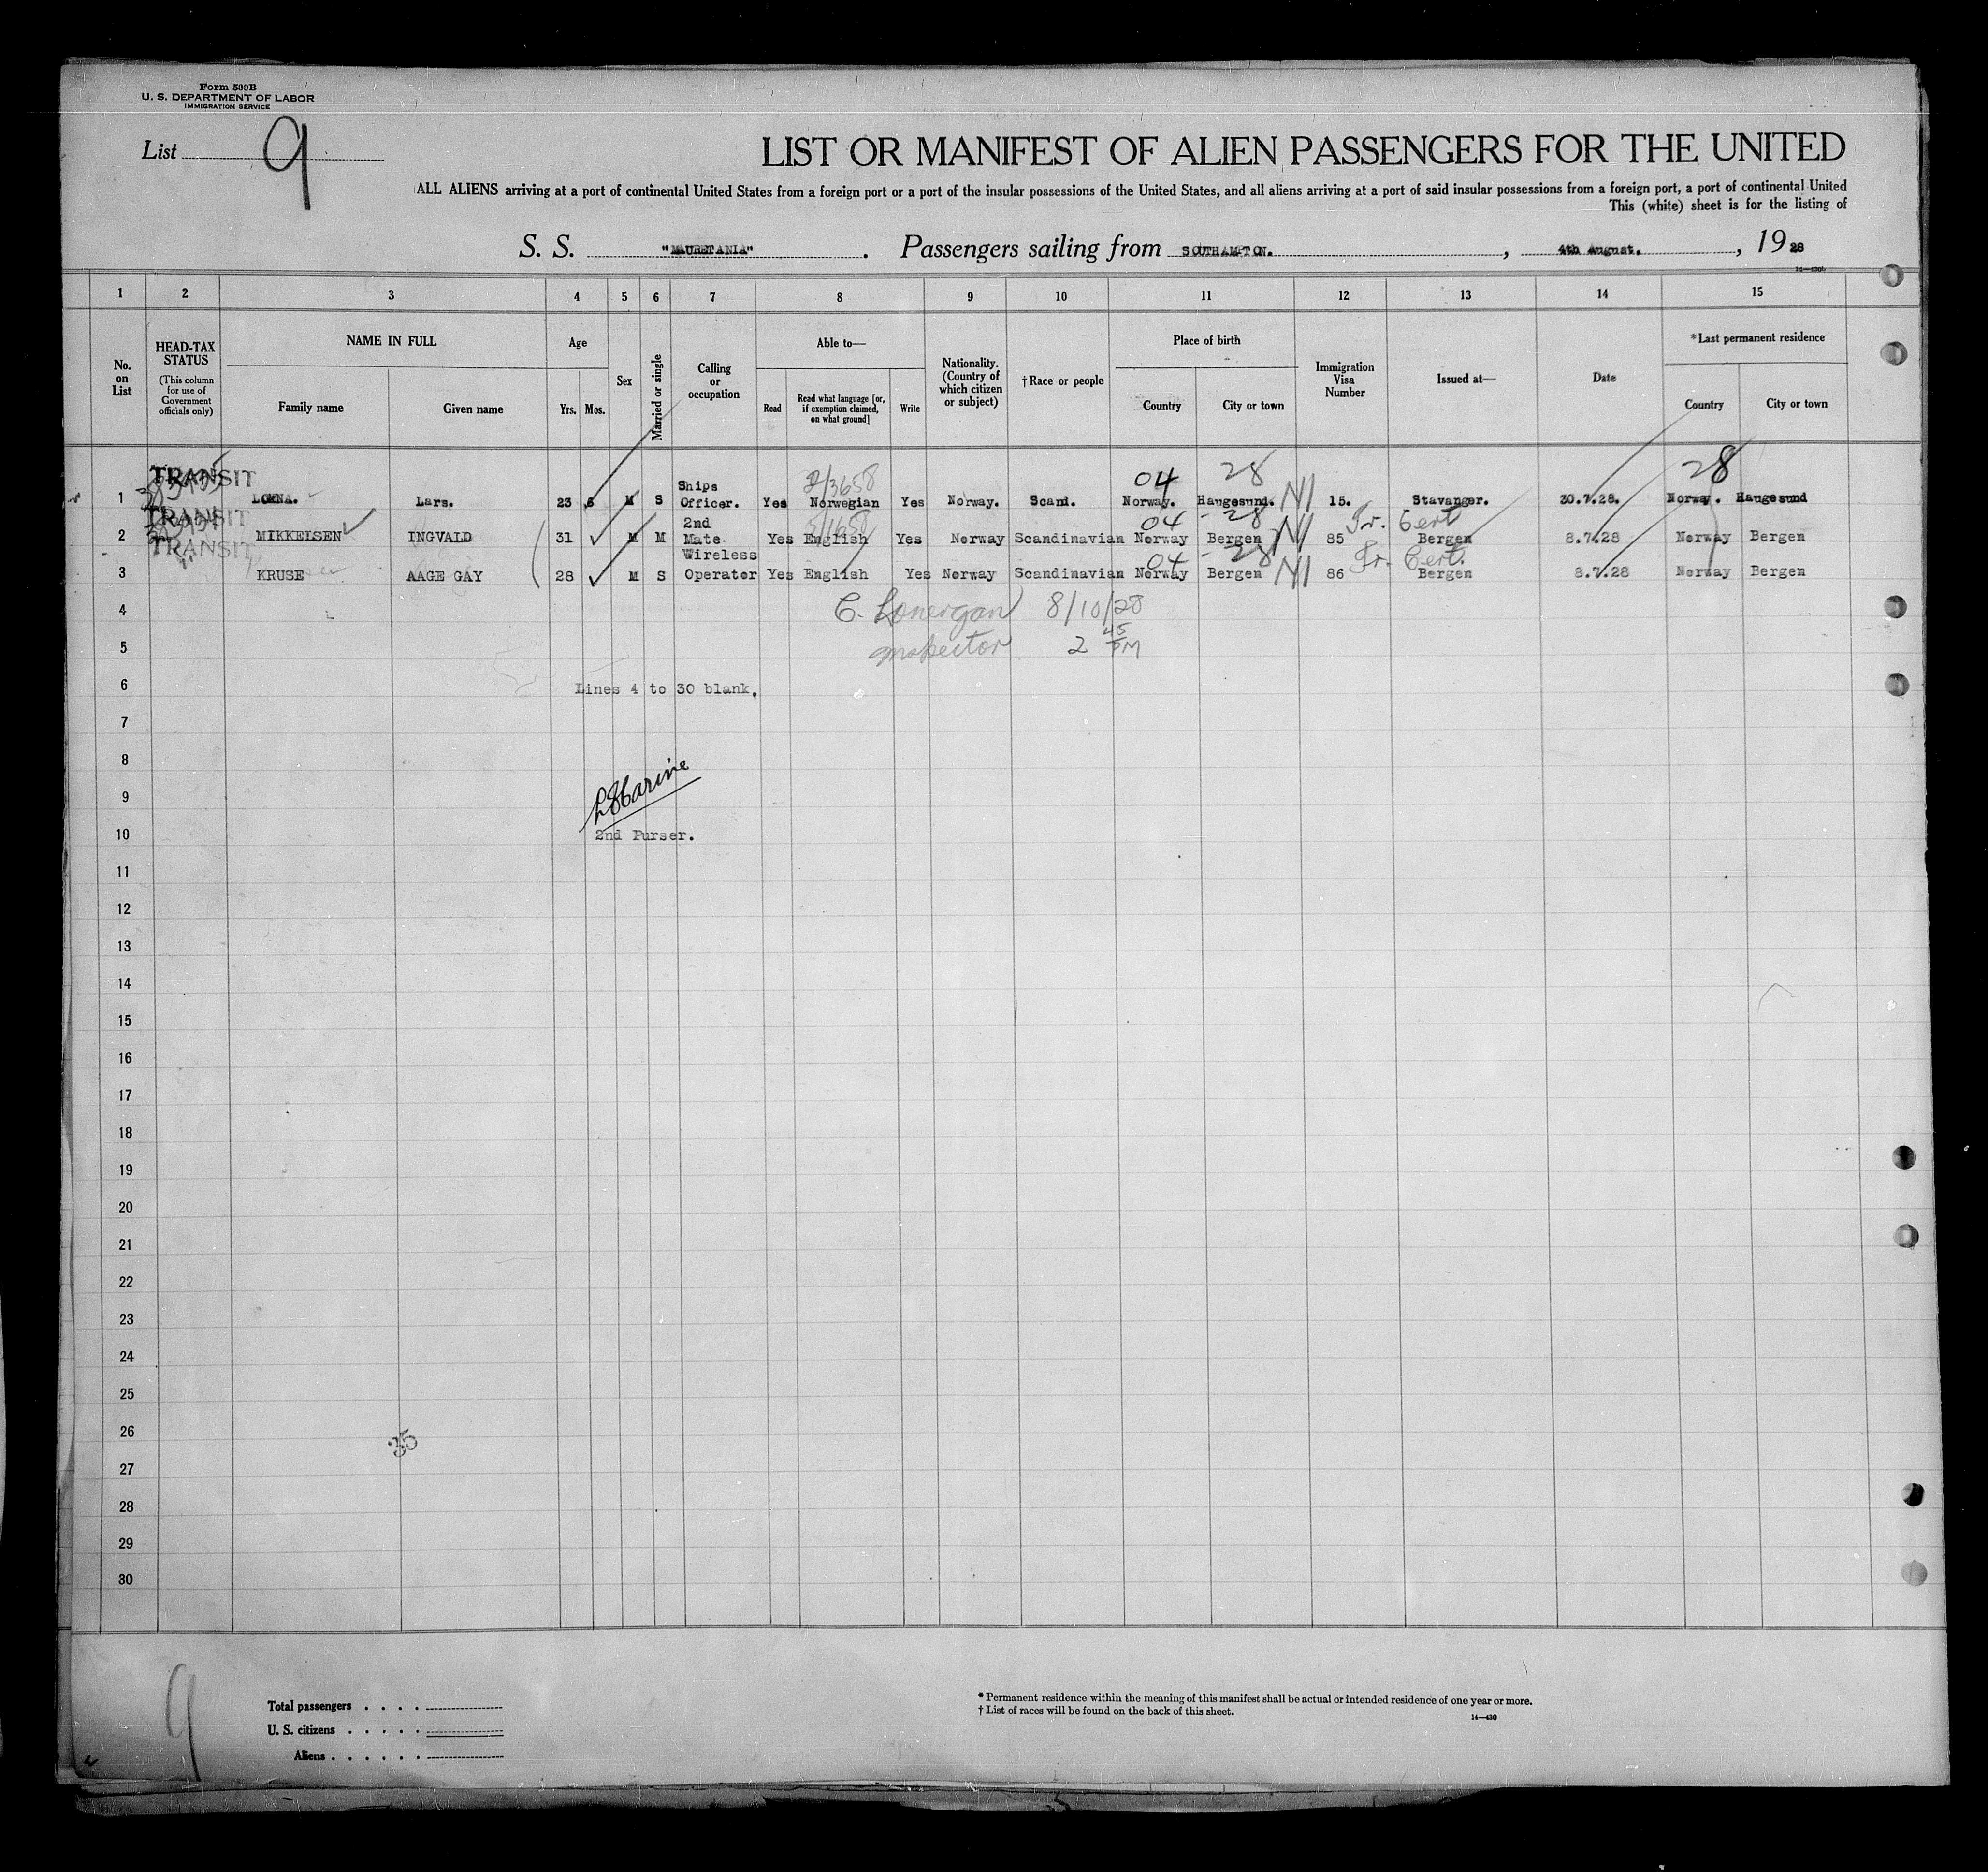 Form 500B
U. S. DEPARTMENT OF LABOR
IMMIGRATION SERVICE
List 9
LIST OR MANIFEST OF ALIEN PASSENGERS FOR THE UNITED
ALL ALIENS arriving at a port of continental United States from a foreign port or a port of the insular possessions of the United States, and all aliens arriving at a port of said insular possessions from a foreign port, a port of continental United
This (white) sheet is for the listing of
S. S. "MAURETANIA". Passengers sailing from SOUTHAMPTON., 4th August., 1928
1 2 3 4 5 6 7 8 9 10 11 12 13 14 15
No. on List
HEAD-TAX STATUS
(This column for use of Government officials only)
NAME IN FULL
Family name Given name
Age
Yrs. Mos.
Sex
Married or single
Calling or occupation
Able to—
Read
Read what language [or, if exemption claimed, on what ground]
Write
Nationality. (Country of which citizen or subject)
†Race or people
Place of birth
Country City or town
Immigration Visa Number
Issued at—
Date
*Last permanent residence
Country City or town
04 28 28
1 TRANSIT Lars. 23 6 M S Ships Officer. Yes Norwegian Yes Norway. Scand. Norway. Haugesund. 15. Stavanger. 30.7.28. Norway. Haugesund
04 28 Tr. Cert
2 TRANSIT MIKKELSEN INGVALD 31 M M 2nd Mate Yes English Yes Norway Scandinavian Norway Bergen 85 Bergen 8.7.28 Norway Bergen
04 28 Tr. Cert.
3 TRANSIT KRUSE AAGE GAY 28 M S Wireless Operator Yes English Yes Norway Scandinavian Norway Bergen 86 Bergen 8.7.28 Norway Bergen
4 C. Lonergan 8/10/28
5 Inspector 2 45 PM
6 Lines 4 to 30 blank.
7
8
9
10 2nd Purser.
11
12
13
14
15
16
17
18
19
20
21
22
23
24
25
26 35
27
28
29
30
9
Total passengers . . . .
U. S. citizens . . . . .
Aliens . . . . . .
* Permanent residence within the meaning of this manifest shall be actual or intended residence of one year or more.
† List of races will be found on the back of this sheet.
14—430